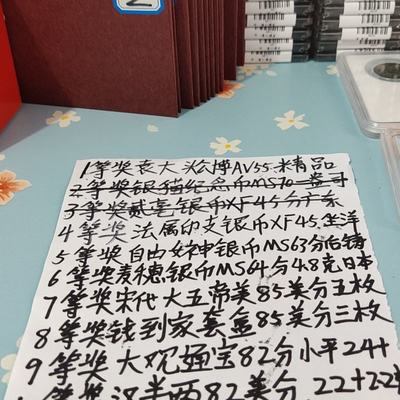 1等奖袁大 公博AV55.精品
2等奖银猫纪念币MS70一盎司
3等奖贰毫银币XF45分广东
4等奖法属印支银币XF45.坐洋
5等奖自由女神银币MS63分后铸
6等奖麦穗银币MS64分4.8克日本
7等奖宋代大五帝美85美分五枚
8等奖钱到家套盒85美分三枚
9等奖大观通宝82分小平24+
等奖汉半两82美分 22+22